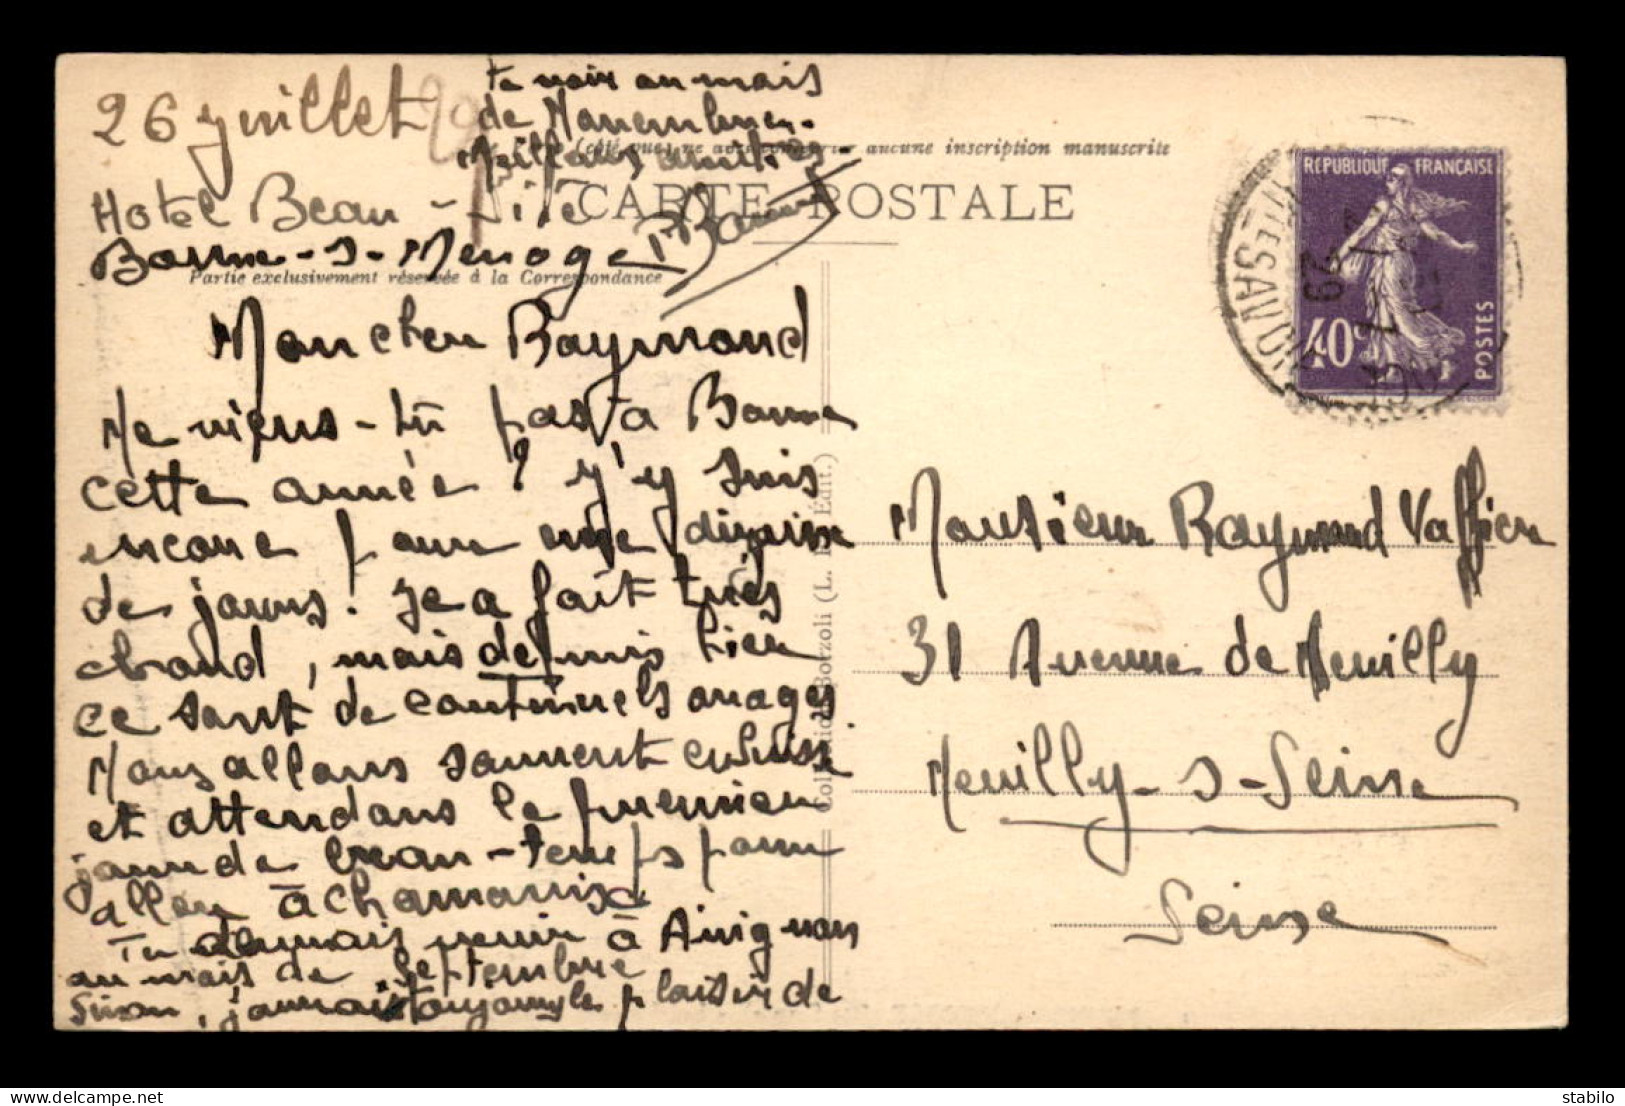 26 Juillet 29
Hotel Beau-Site
Bonne-s-Menoge
Partie exclusivement réservée à la Correspondance
Mon cher Raymond
Ne viens-tu pas à Bonne
cette année ? J'y suis
encore pour une dizaine
de jours ! Il a fait très
chaud, mais depuis hier
ce sont de continuels orages
Nous allons souvent en Suisse
et attendons le premier
jour de beau-temps pour
aller à Chamonix
Tu devrais venir à Avignon
au mois de Septembre
Sinon, j'aurai toujours le plaisir de
te voir au mois
de Novembre.
Meilleures amitiés
aucune inscription manuscrite
CARTE POSTALE
Collection Borzoli (L. Édit.)
REPUBLIQUE FRANÇAISE
40c
POSTES
29
Monsieur Raymond Vaffier
31 Avenue de Neuilly
Neuilly-s-Seine
Seine
delcampe.net
stabilo